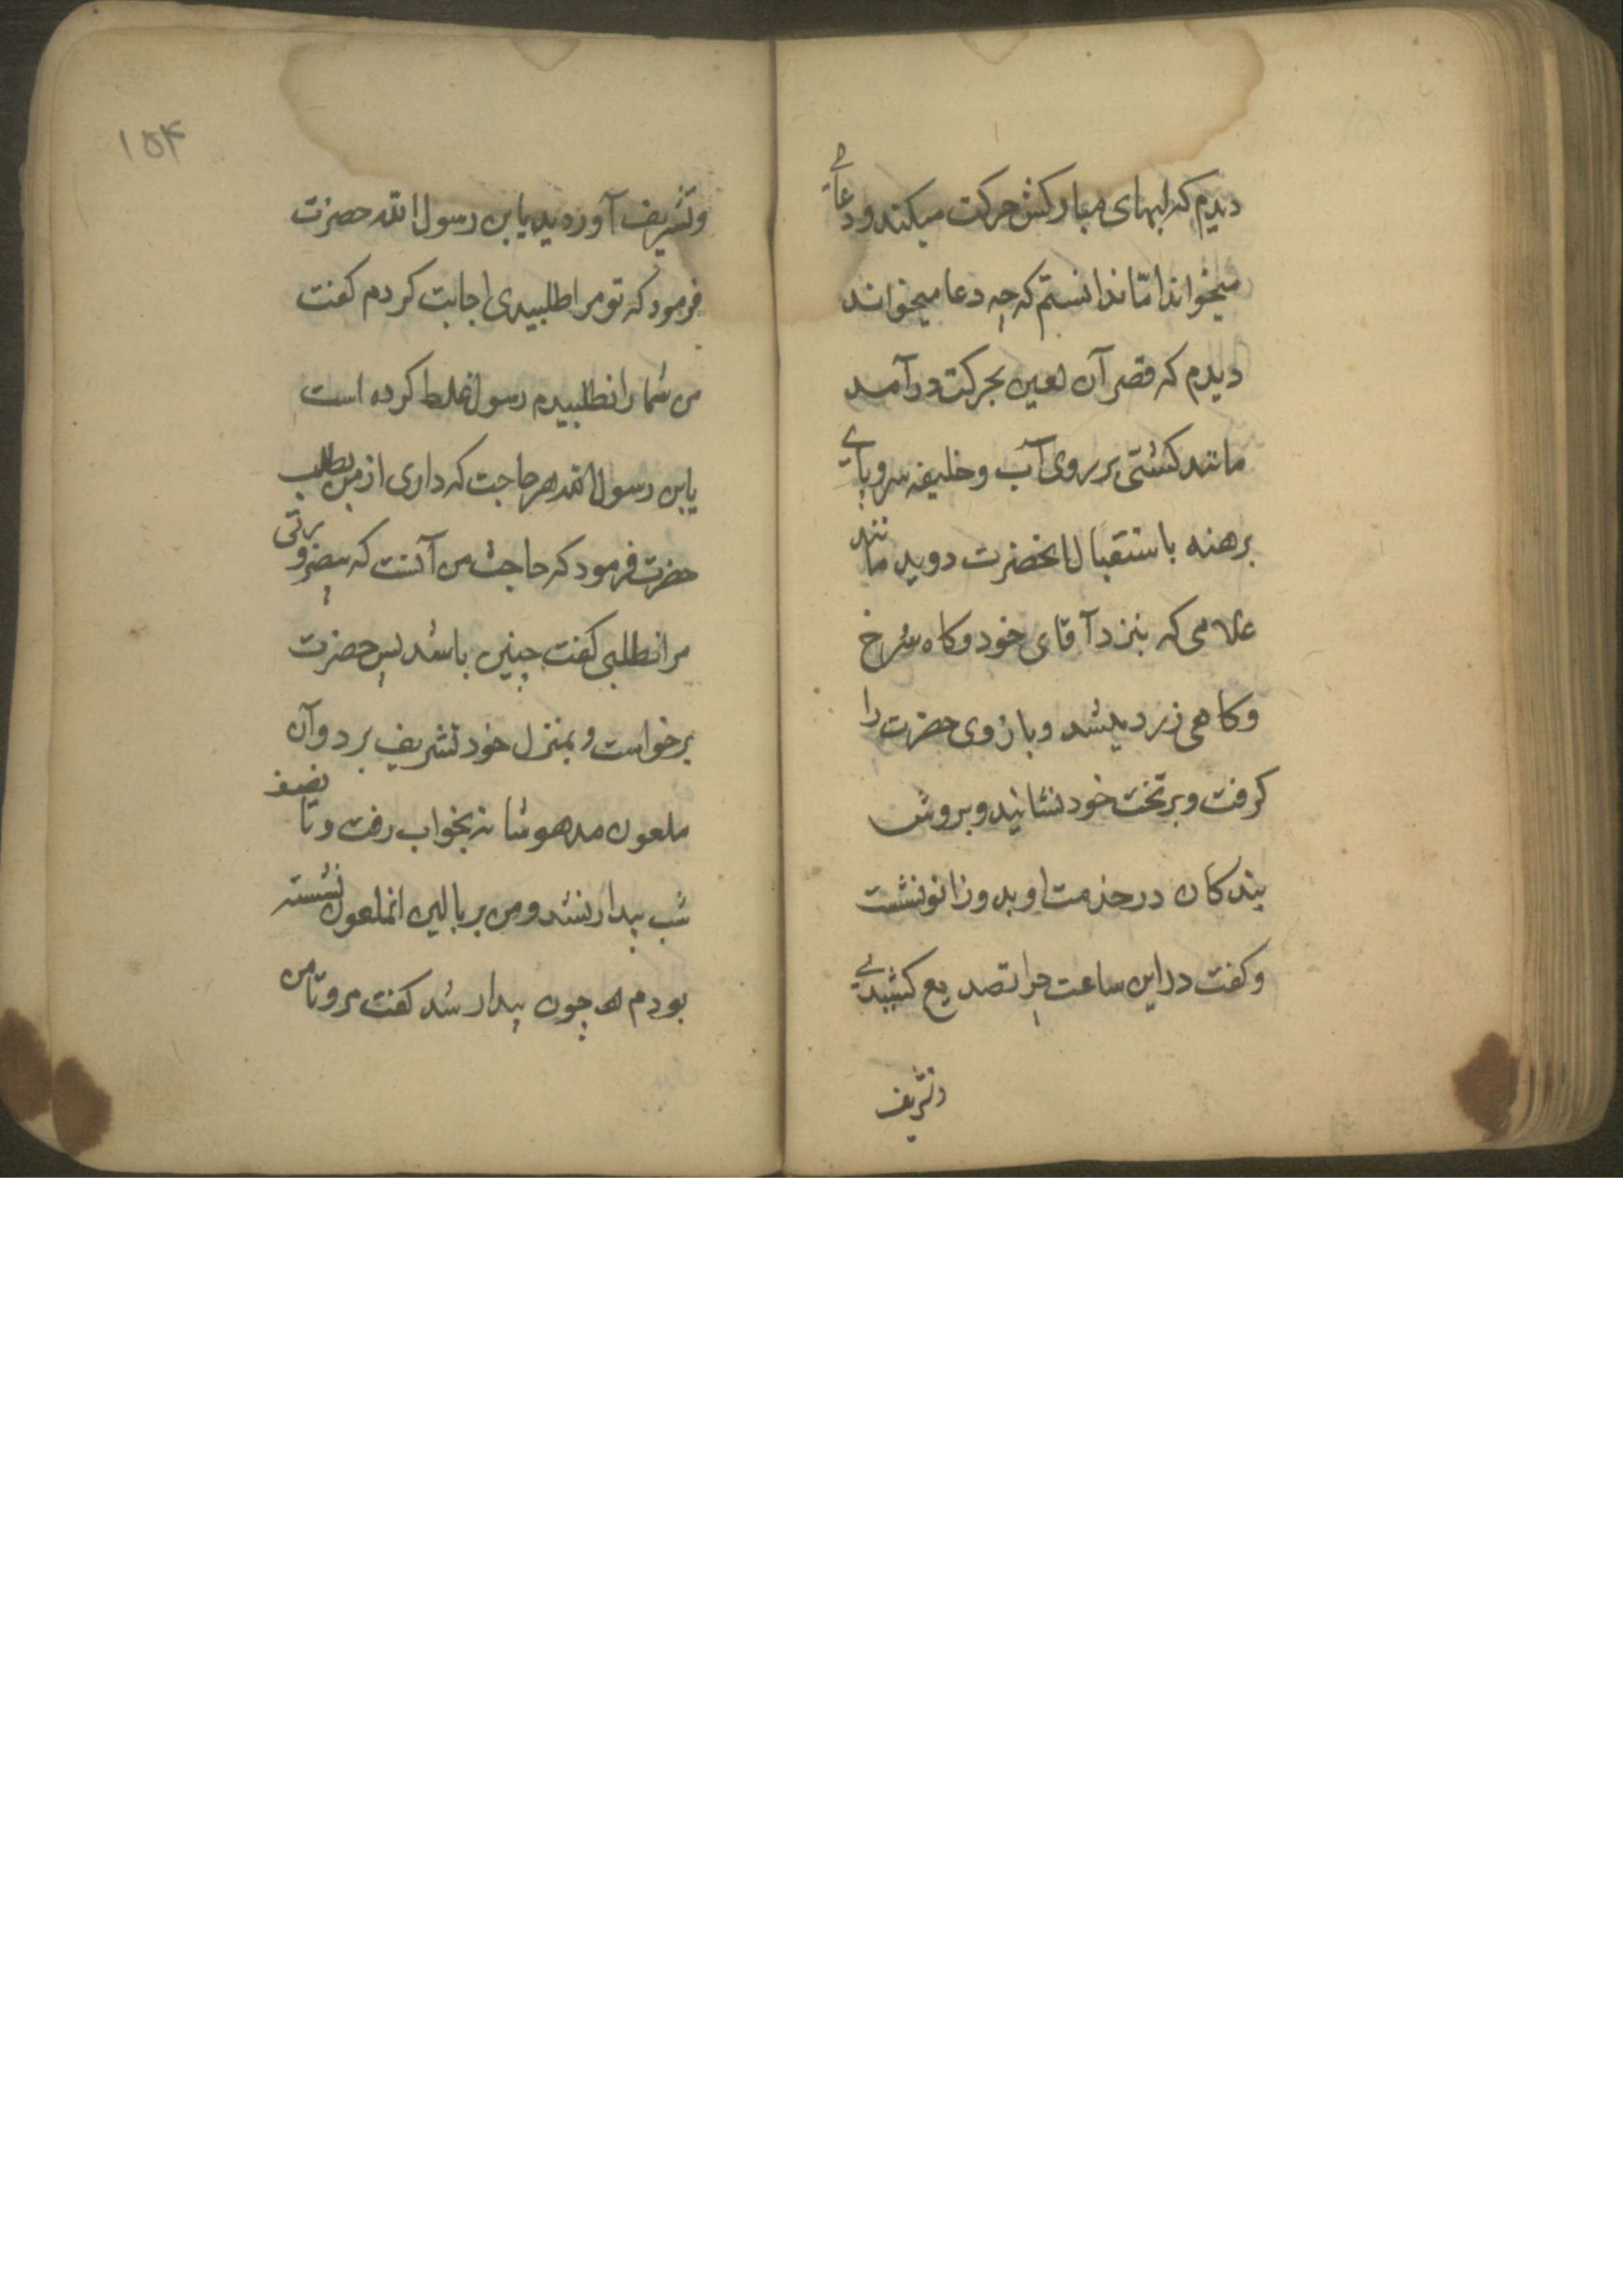 دیدم که لبهای مبارکش حرکت میکند و دعائے
میخواند امّا ندانستم که چه دعا میخواند
دیدم که قصر آن لعین بحرکت درآمد
مانند کشتی بر روی آب و خلیفه سر و پاے
برهنه باستقبال انحضرت دوید مانند
غلامی که بنزد آقای خود و کاه سرخ
و کاهی زرد میشد و بازوی حضرت را
کرفت و بر تخت خود نشانید و بروش
بندکان در خدمت او بدو زانو نشست
و کفت در این ساعت چرا تصدیع کشیدے
و تشریف
۱۵۴
و تشریف آوردید یابن رسول الله حضرت
فرمود که تو مرا طلبیدی اجابت کردم کفت
من شما را نطلبیدم رسول غلط کرده است
یابن رسول الله هر حاجت که داری از من بطلب
حضرت فرمود که حاجت من آنست که بیضرورتی
مرا نطلبی کفت چنین باشد پس حضرت
برخواست و بمنزل خود تشریف برد و آن
ملعون مدهوشانه بخواب رفت و تا نصف
شب بیدار نشد و من بر بالین انملعون نشسته
بودم چون بیدار شد کفت مرو تا من